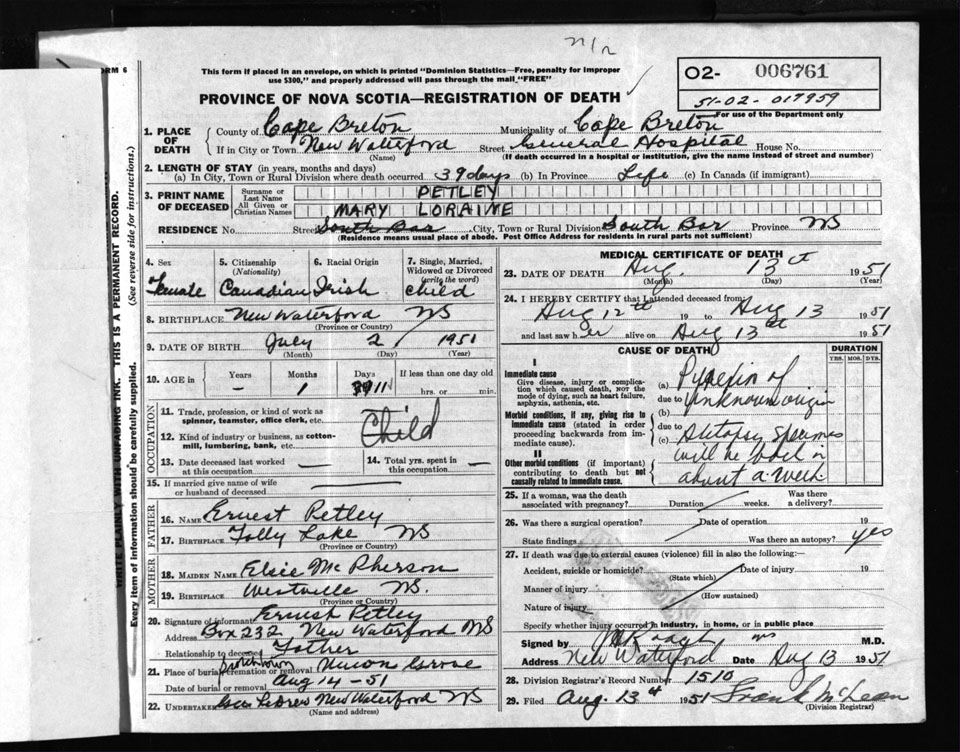 n/r
ORM 6
This form if placed in an envelope, on which is printed "Dominion Statistics—Free, penalty for improper
use $300," and properly addressed will pass through the mail "FREE"
O2- 006761
51-02-017959
For use of the Department only
PROVINCE OF NOVA SCOTIA—REGISTRATION OF DEATH
WRITE PLAINLY WITH UNFADING INK. THIS IS A PERMANENT RECORD.
Every item of information should be carefully supplied. (See reverse side for instructions.)
1. PLACE OF DEATH County of Cape Breton Municipality of Cape Breton
If in City or Town New Waterford Street General Hospital House No.
(Name) (If death occurred in a hospital or institution, give the name instead of street and number)
2. LENGTH OF STAY (in years, months and days)
(a) In City, Town or Rural Division where death occurred 39 days (b) In Province Life (c) In Canada (if immigrant)
3. PRINT NAME OF DECEASED Surname or Last Name PETLEY
All Given or Christian Names MARY LORAINE
RESIDENCE No. Street South Bar City, Town or Rural Division South Bar Province NS
(Residence means usual place of abode. Post Office Address for residents in rural parts not sufficient)
4. Sex 5. Citizenship (Nationality) 6. Racial Origin 7. Single, Married, Widowed or Divorced (write the word)
Female Canadian Irish child
8. BIRTHPLACE New Waterford NS
(Province or Country)
9. DATE OF BIRTH July 2 1951
(Month) (Day) (Year)
10. AGE in Years Months Days If less than one day old
- 1 11 hrs. or min.
OCCUPATION
11. Trade, profession, or kind of work as spinner, teamster, office clerk, etc. Child
12. Kind of industry or business, as cotton-mill, lumbering, bank, etc.
13. Date deceased last worked at this occupation — 14. Total yrs. spent in this occupation —
15. If married give name of wife or husband of deceased
FATHER
16. NAME Ernest Petley
17. BIRTHPLACE Folly Lake NS
(Province or Country)
MOTHER
18. MAIDEN NAME Elsie McPherson
19. BIRTHPLACE Westville NS.
(Province or Country)
20. Signature of informant Ernest Petley
Address Box 232 New Waterford NS
Relationship to deceased Father
21. Place of burial, cremation or removal Union Grove
Date of burial or removal Aug 14-51
22. UNDERTAKER New Waterford NS
(Name and address)
MEDICAL CERTIFICATE OF DEATH
23. DATE OF DEATH Aug. 13th 1951
(Month) (Day) (Year)
24. I HEREBY CERTIFY that I attended deceased from
Aug 12th 19 to Aug 13 1951
and last saw her alive on Aug 13th 1951
CAUSE OF DEATH DURATION
YRS. MOS. DYS.
I
Immediate cause
Give disease, injury or complication which caused death, NOT the mode of dying, such as heart failure, asphyxia, asthenia, etc.
(a) Pyrexia of
due to unknown origin
Morbid conditions, if any, giving rise to immediate cause (stated in order proceeding backwards from immediate cause).
(b)
due to
(c) Autopsy
will be
II
Other morbid conditions (if important) contributing to death but not causally related to immediate cause.
about a week
25. If a woman, was the death associated with pregnancy? Duration weeks. Was there a delivery?
26. Was there a surgical operation? Date of operation 19
State findings Was there an autopsy? yes
27. If death was due to external causes (violence) fill in also the following:—
Accident, suicide or homicide? Date of injury 19
(State which)
Manner of injury
(How sustained)
Nature of injury
Specify whether injury occurred in industry, in home, or in public place
Signed by M.D.
Address New Waterford Date Aug 13 1951
28. Division Registrar's Record Number 1510
29. Filed Aug. 13th 1951 Frank McLean
(Division Registrar)